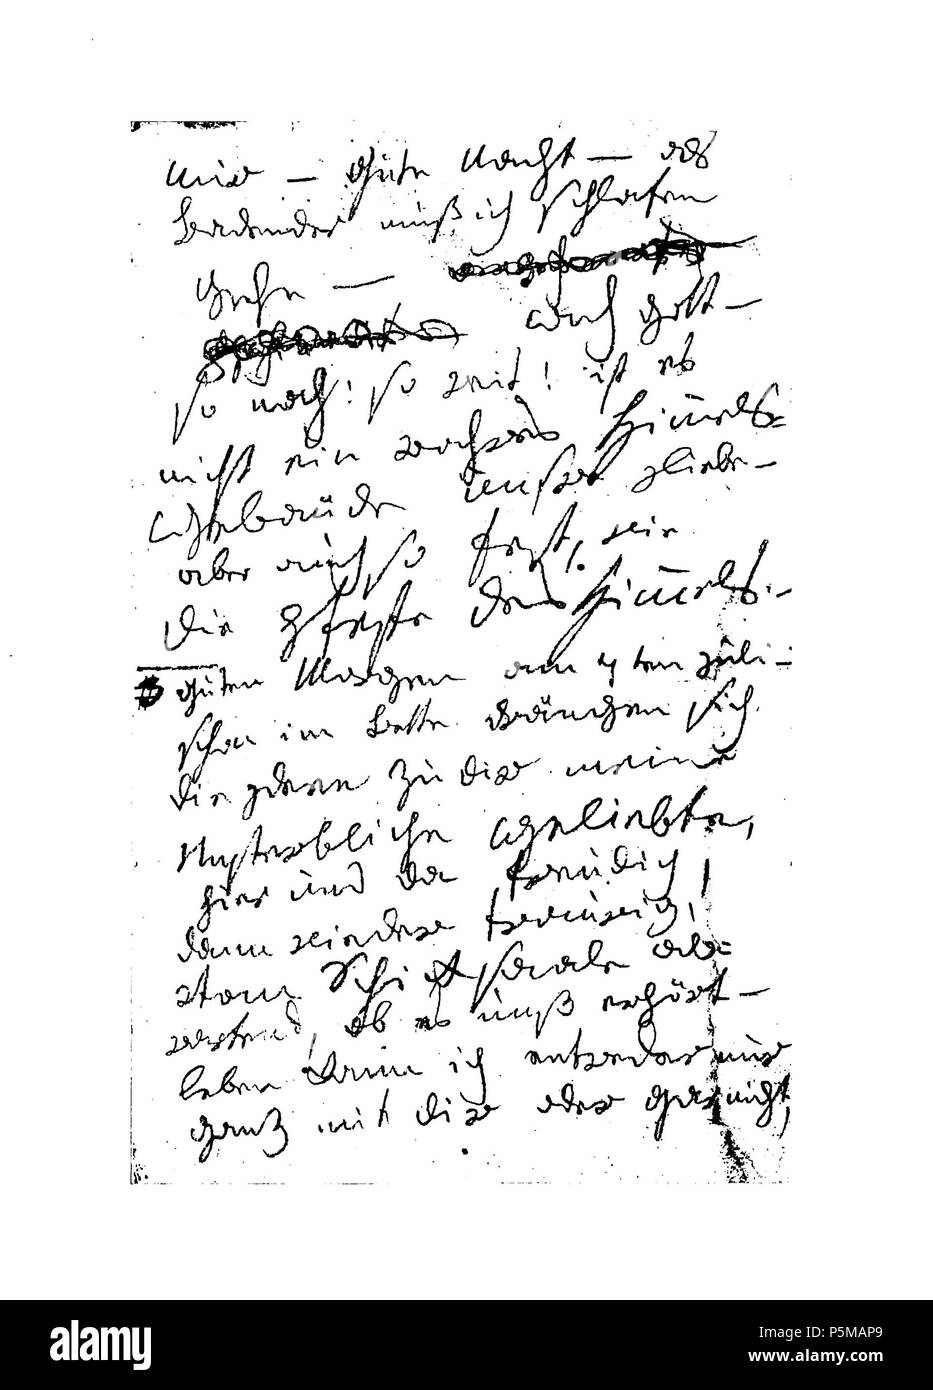 mir — Gute Nacht — als
Badender muß ich schlafen
gehn —
ach gott —
so nah! so weit! ist es
nicht ein wahres Himels=
Gebäude unsre Liebe —
aber auch so fest, wie
die Feste des Himels. —
guten Morgen am 7ten juli —
schon im Bette drängen sich
die Ideen zu dir meine
Unsterbliche Geliebte,
hier und da freudig,
dann wieder traurig,
vom Schicksaale ab=
wartend, ob es unß erhört —
leben kann ich entweder nur
ganz mit dir oder gar nicht,
alamy
Image ID: P5MAP9
www.alamy.com